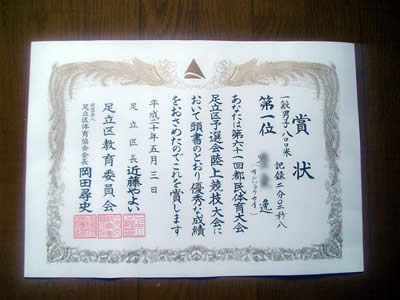 賞状
一般男子八〇〇米 記録 二分〇二秒八
第一位 逸
あなたは第六十一回都民体育大会
足立区予選会陸上競技大会に
おいて頭書のとおり優秀な成績
をおさめたのでこれを賞します
平成二十年五月三日
足立区長 近藤やよい
足立区教育委員会
足立区体育協会会長 岡田尋史